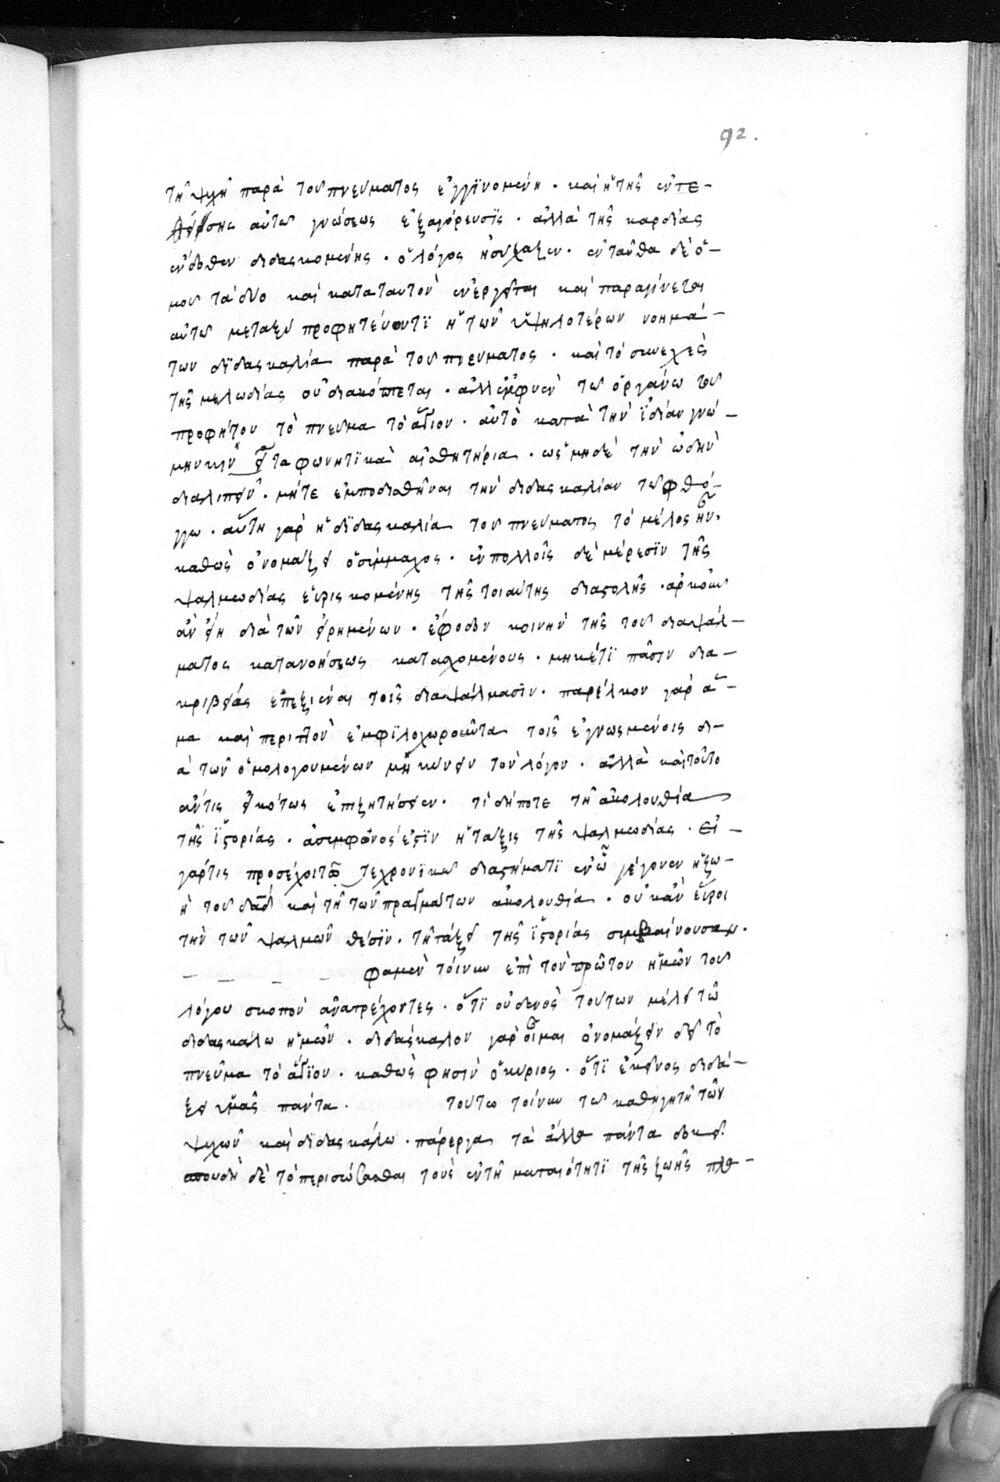 92.
τῇ ψυχῇ παρὰ τοῦ πνεύματος ἐγγϊνομένη · καὶ ἡ τῆς ἐντε-
θείσης αὐτῶ γνώσεως ἐξαγόρευσϊς · ἀλλὰ τῆς καρδίας
ἔνδοθεν διδασκομένης · ὁ λόγος ἡσύχαζεν · ἐνταῦθα δὲ ὁ-
μοῦ τὰ δύο καὶ κατὰ ταυτὸν ἐνεργεῖται καὶ παραγίνεται
αὐτῶ μεταξὺ προφητεύοντϊ ἡ τῶν ὑψηλοτέρων νοημά-
των δϊδασκαλία παρὰ τοῦ πνεύματος · καὶ τὸ συνεχὲς
τῆς μελωδίας οὐ διακόπτεται · ἀλλ' ἐμφυὲν τῶ ὀργάνω τοῦ
προφήτου τὸ πνεῦμα τὸ ἅγιον · αὐτὸ κατὰ τὴν ἰδίαν γνώ-
μην κινεῖ τὰ φωνητϊκὰ αἰσθητήρια · ὡς μηδὲ τὴν ὠδὴν
διαλιπεῖν · μήτε ἐμποδισθῆναι τὴν διδασκαλίαν τῶ φθό-
γγω · αὕτη γὰρ ἡ δϊδασκαλία τοῦ πνεύματος τὸ μέλος ἦν ·
καθὼς ὀνομάζει ὁ σύμμαχος · ἐν πολλοῖς δὲ μέρεσϊν τῆς
ψαλμωδίας εὑρισκομένης τῆς τοιαύτης διαστολῆς · ἀρκοῦν
ἂν εἴη διὰ τῶν εἰρημένων · ἔφοδον κοινὴν τῆς τοῦ διαψάλ-
ματος κατανοήσεως καταχομένους · μηκέτϊ πᾶσιν δια-
κριβείας ἐπεξιέναι τοῖς διαψάλμασϊν · παρέλκον γὰρ ἅ-
μα καὶ περιττὸν ἐμφϊλοχωροῦντα τοῖς ἐγνωσμένοις δι-
ὰ τῶν ὁμολογουμένων μηκύνειν τὸν λόγον · ἀλλὰ καὶ τοῦτο
ἄν τις εἰκότως ἐπιζητήσειεν · τί δήποτε τῇ ἀκολουθία
τῆς ἱστορίας · ἀσύμφωνός ἐστϊν ἡ τάξις τῆς ψαλμωδίας · εἰ
γάρ τις προσέχοι τῶ τε χρονϊκῶ διαστήματϊ ἐν ὧ γέγονεν ἡ ζω-
ὴ τοῦ δαδ καὶ τῇ τῶν πραγμάτων ἀκολουθία · οὐκ ἂν εὕροι
τὴν τῶν ψαλμῶν θέσϊν · τῇ τάξει τῆς ἱστορίας συμβαίνουσαν ·
φαμὲν τοίνυν ἐπὶ τὸν πρῶτον ἡμῶν τοῦ
λόγου σκοπὸν ἀνατρέχοντες · ὅτϊ οὐδενὸς τούτων μέλει τῶ
διδασκάλω ἡμῶν · διδάσκαλον γὰρ οἶμαι ὀνομάζειν δεῖ τὸ
πνεῦμα τὸ ἅγϊον · καθὼς φησὶν ὁ κύριος · ὅτϊ ἐκεῖνος διδά-
ξει ὑμᾶς πάντα · τούτω τοίνυν τῶ καθηγητῇ τῶν
ψυχῶν καὶ δϊδασκάλω · πάρεργα τὰ ἄλλα πάντα δοκεῖ ·
σπουδὴ δὲ τὸ περισώζεσθαι τοὺς ἐν τῇ ματαιότητϊ τῆς ζωῆς πλα-